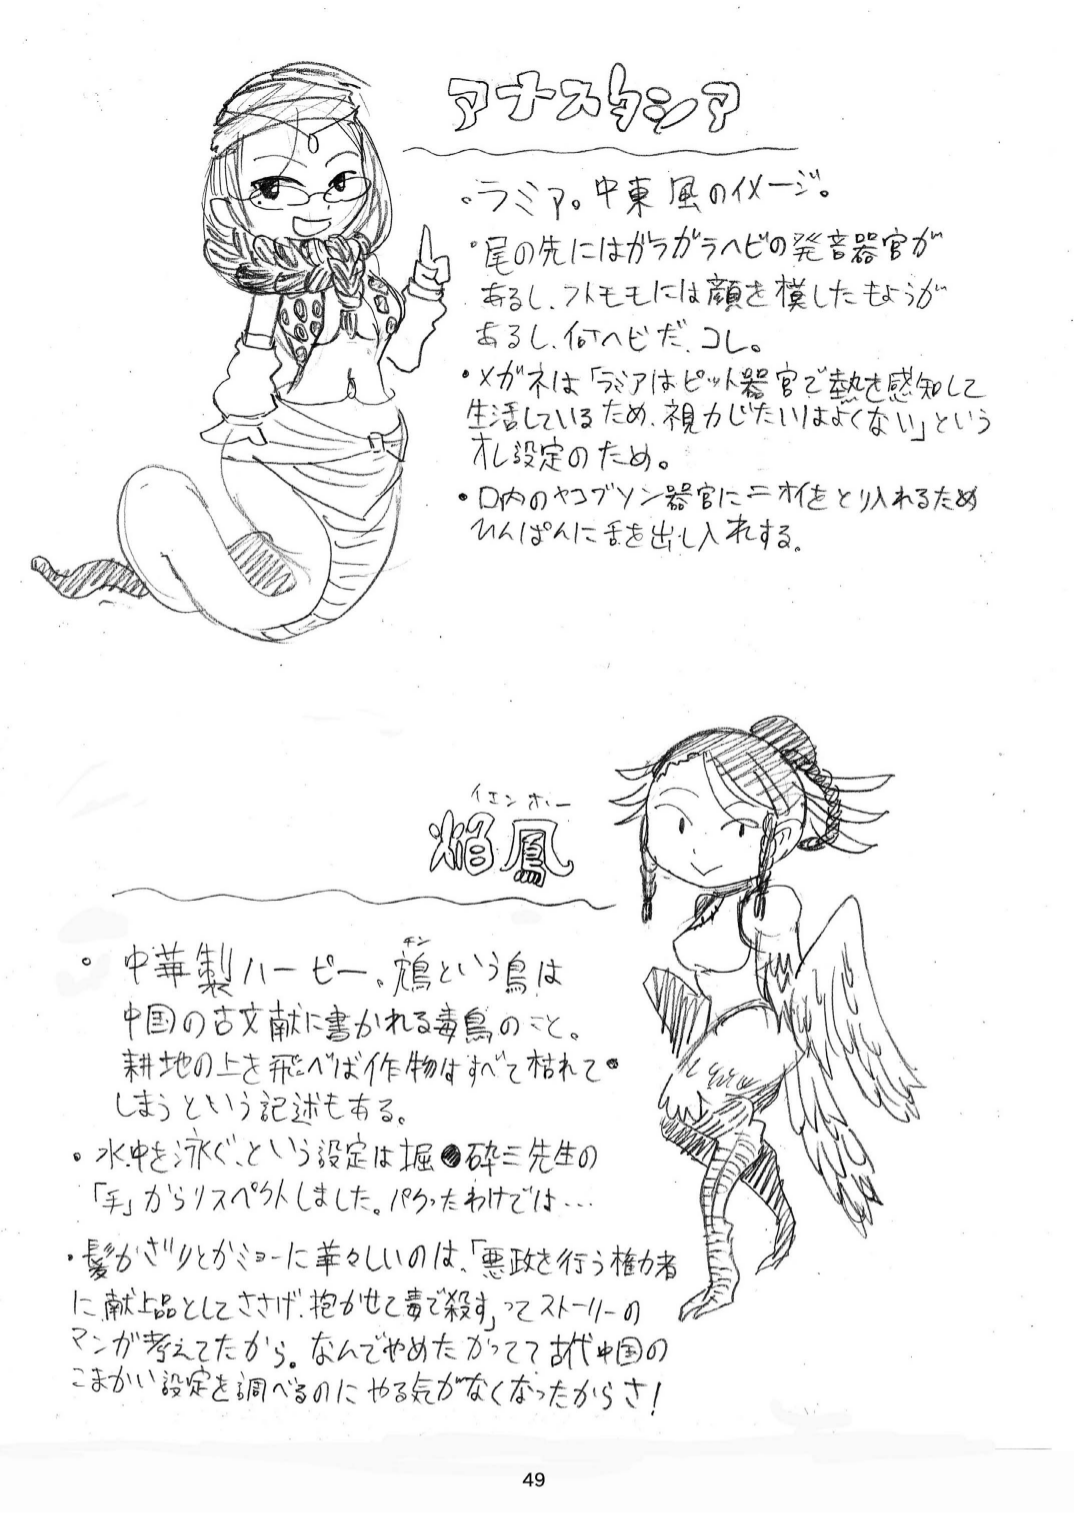 アナスタシア
・ラミア。中東風のイメージ。
・尾の先にはガラガラヘビの発音器官が
あるし、フトモモには顔を模したもようが
あるし、何ヘビだ、コレ。
・メガネは「ラミアはピット器官で熱を感知して
生活しているため、視力じたいはよくない」という
オレ設定のため。
・口内のヤコブソン器官にニオイをとり入れるため
ひんぱんに舌を出し入れする。
イエンホー
焔鳳
・中華製ハーピー、鴆という鳥は
チン
中国の古文献に書かれる毒鳥のこと。
耕地の上を飛べば作物はすべて枯れて
しまうという記述もある。
・水中を泳ぐ、という設定は掘●砕三先生の
「手」からリスペクトしました。パクったわけでは…
・髪かざりとかミョーに華々しいのは、「悪政を行う権力者
に献上品としてささげ、抱かせて毒で殺す」ってストーリーの
マンガ考えてたから。なんでやめたかってて古代中国の
こまかい設定を調べるのにやる気がなくなったからさ!
49